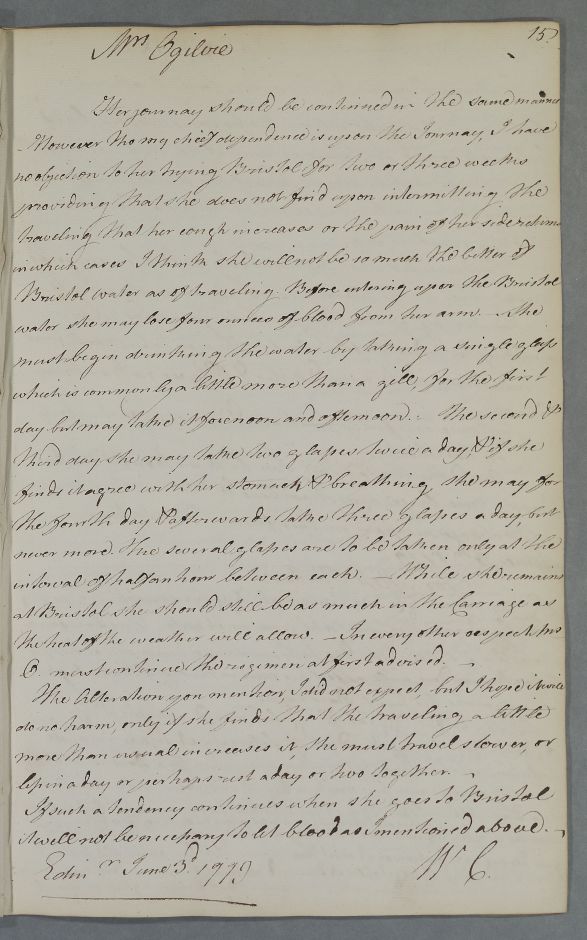 15.
Mrs Ogilvie
Her journay should be continued in the same manner
However tho my chief dependence is upon the Journay, I have
no objection to her trying Bristol for two or three weeks
providing that she does not find upon intermitting the
traveling that her cough increases or the pain of her side returns
in which cases I think she will not be so much the better of
Bristol water as of traveling. Before entering upon the Bristol
water she may lose four ounces of blood from her arm. — She
must begin drinking the water by taking a single glass
which is commonly a little more than a gill, for the first
day but may take it forenoon and afternoon. The second &
third day she may take two glasses twice a day & if she
finds it agree with her stomach & breathing she may for
the fourth day & afterwards take three glasses a day, but
never more. The several glasses are to be taken only at the
interval of half an hour between each. — While she remains
at Bristol she should still be as much in the Carriage as
the heat of the weather will allow. — In every other respect Mrs
O. must continue the regimen at first advised. —
The Alteration you mention, I did not expect, but I hope it will
do no harm, only if she finds that the traveling a little
more than usual increases it, she must travel slower, or
less in a day or perhaps rest a day or two together. —
If such a tendency continues when she goes to Bristol
it will not be necessary to let blood as I mentioned above. —
Edinr June 3d 1779 W C.